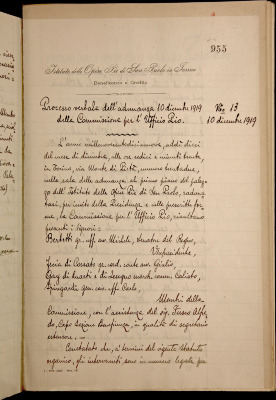 955
Istituto delle Opere Pie di San Paolo in Torino
Beneficenza e Credito
Processo verbale dell'adunanza 10 dicembre 1919
della Commissione per l'Ufficio Pio.
No. 13
10 dicembre 1919
L'anno millenovecentodiciannove, addì dieci
del mese di dicembre, alle ore sedici e minuti trenta,
in Torino, via Monte di Pietà, numero trentadue,
nella sala delle adunanze al primo piano del palaz-
zo dell'Istituto delle Opere Pie di San Paolo, raduna-
tasi, per invito della Presidenza e nelle prescritte for-
me, la Commissione per l'Ufficio Pio, risultano
presenti i signori:
Bertetti gr. uff. avv. Michele, Senatore del Regno,
Vicepresidente,
di Cossato gr. cord. conte avv.
di Quarti e di march. comm. Calisto,
Spingardi gen. cav. uff. Carlo,
Membri della
Commissione, con l'assistenza del sig. Alfre-
do, Capo Sezione Beneficenza, in qualità di segretario
estensore, —
Constatato che, ai termini del vigente Statuto
organico, gli intervenuti sono in numero legale per